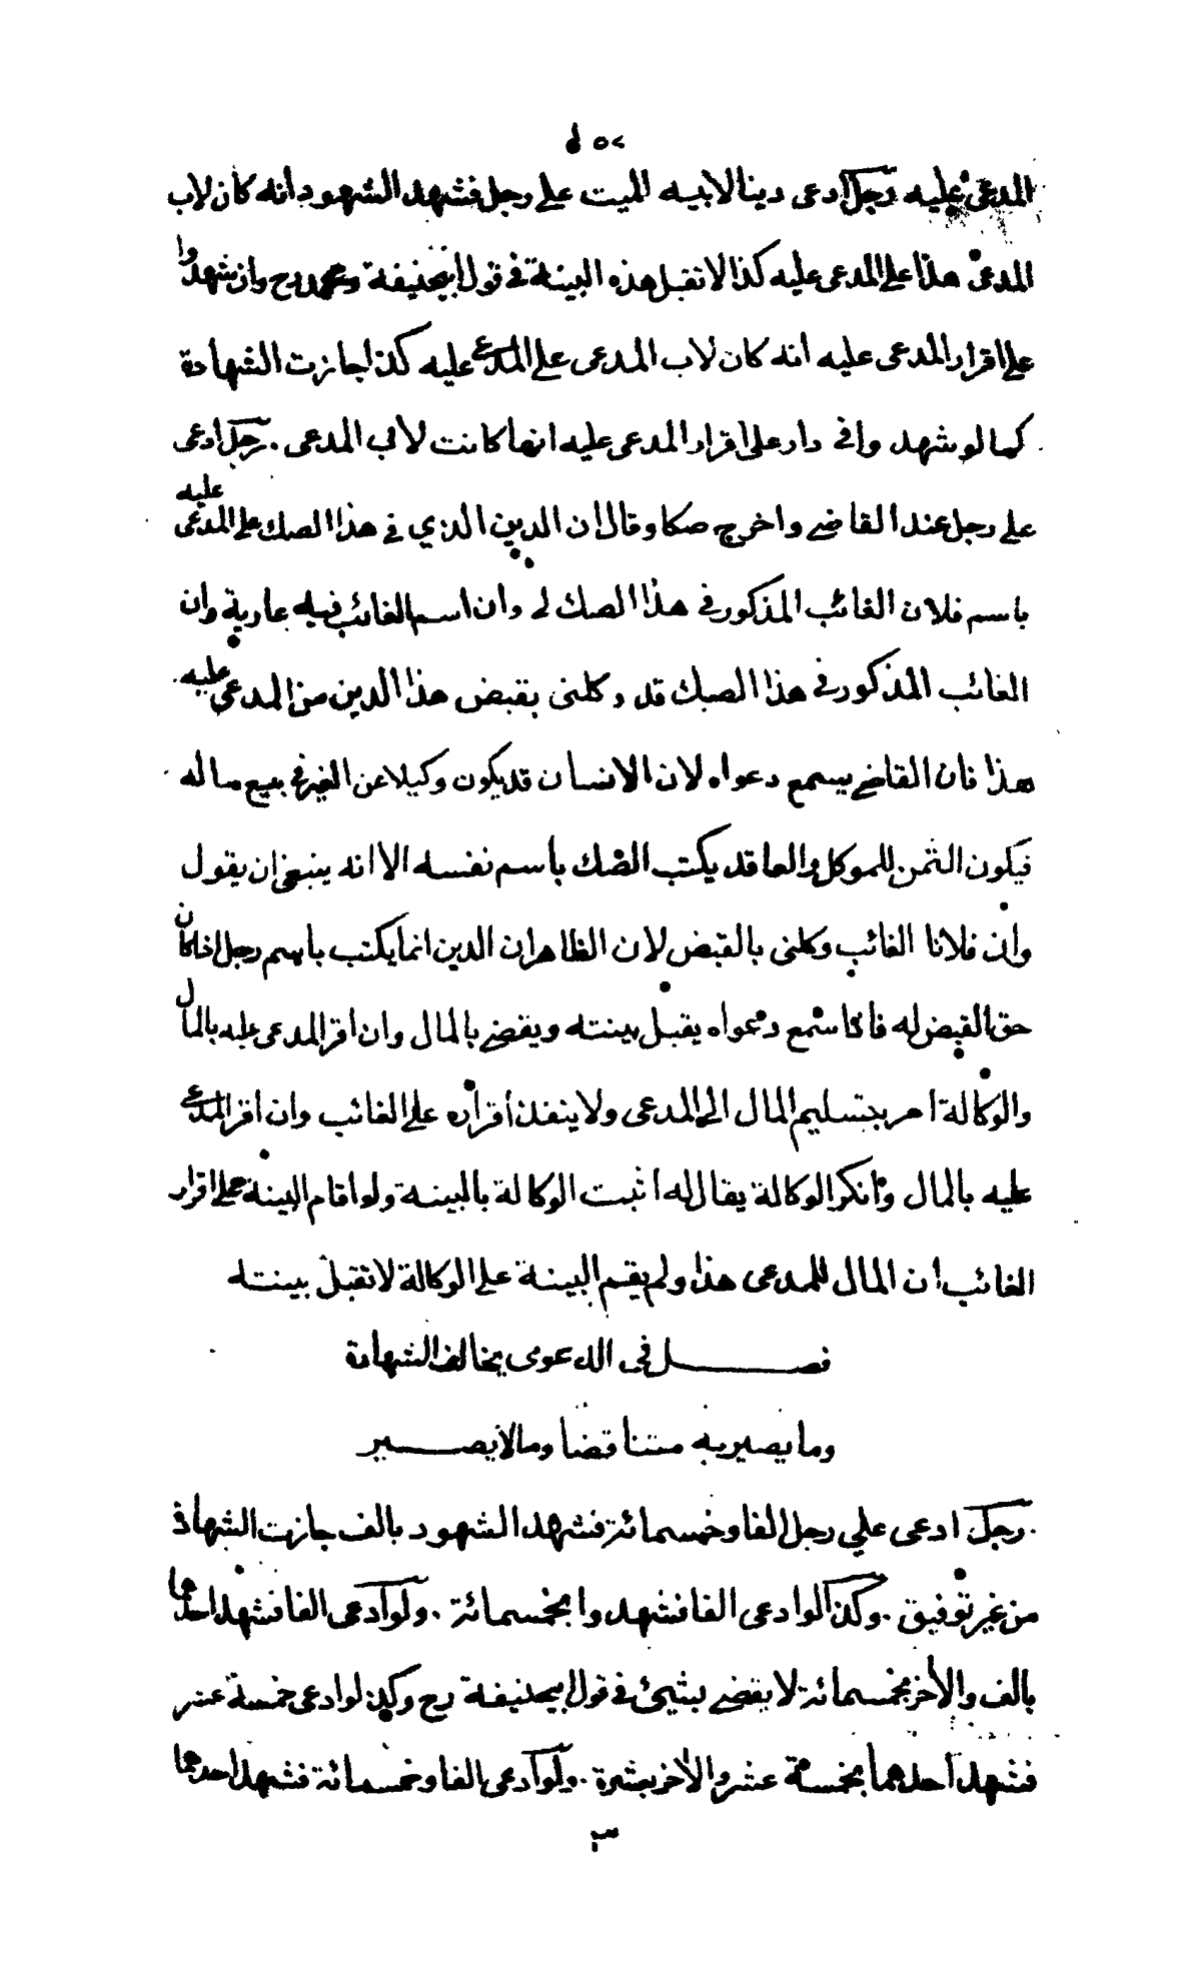 المدعى عليه رجل ادعى دينا لابيه الميت على رجل فشهد الشهود انه كان لاب
المدعى هذا على المدعى عليه كذا لا تقبل هذه البينة في قول ابيحنيفة ومحمد رح وان شهدوا
على اقرار المدعى عليه انه كان لاب المدعى على المدعى عليه كذا جازت الشهادة
كما لو شهدوا في دار على اقرار المدعى عليه انها كانت لاب المدعى . رجل ادعى
على رجل عند القاضي واخرج صكا وقال ان الدين الذي في هذا الصك على المدعى عليه
باسم فلان الغائب المذكور في هذا الصك لي وان اسم الغائب فيه عارية وان
الغائب المذكور في هذا الصك قد وكلنى بقبض هذا الدين من المدعى عليه
هذا فان القاضي يسمع دعواه لان الانسان قد يكون وكيلا عن الغير في بيع ماله
فيكون الثمن للموكل والعاقد يكتب الصك باسم نفسه الا انه ينبغي ان يقول
وان فلانا الغائب وكلنى بالقبض لان الظاهر ان الدين انما يكتب باسم رجل اذا كان
حق القبض له فاذا سمع دعواه يقبل بينته ويقضي بالمال وان اقر المدعى عليه بالمال
والوكالة امر بتسليم المال الى المدعى ولا ينفذ اقراره على الغائب وان اقر المدعى
عليه بالمال وانكر الوكالة يقال له اثبت الوكالة بالبينة ولو اقام البينة على اقرار
الغائب ان المال للمدعى هذا ولم يقم البينة على الوكالة لا تقبل بينته
فصل في الدعوى يخالف الشهادة
وما يصير به متناقضا وما لا يصير
. رجل ادعى علي رجل الفا وخمسمائة فشهد الشهود بالف جازت الشهادة
من غير توفيق . وكذا لو ادعى الفا فشهدوا بخمسمائة . ولو ادعى الفا فشهد احدهما
بالف والاخر بخمسمائة لا يقضي بشيئ في قول ابيحنيفة رح وكذا لو ادعى خمسة عشر
فشهد احدهما بخمسة عشر والاخر بعشرة . ولو ادعى الفا وخمسمائة فشهد احدهما